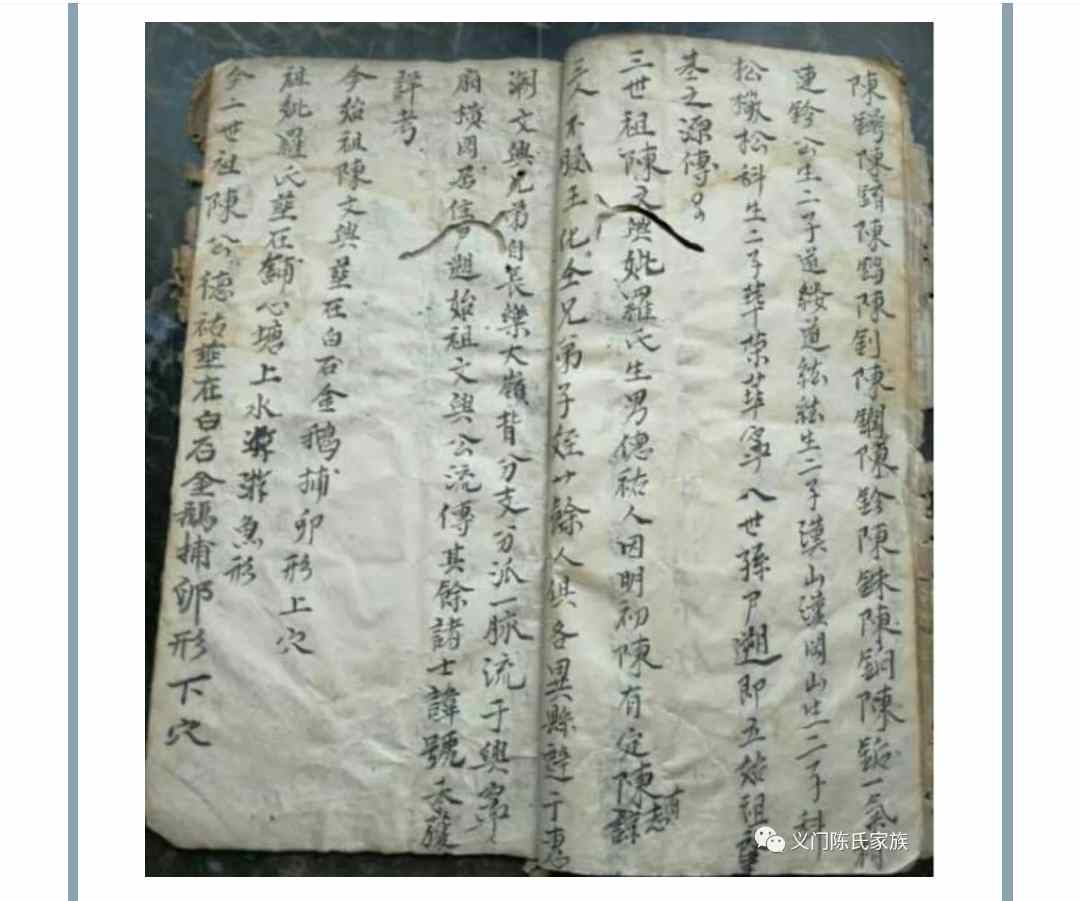 陳 陳 陳鎢陳釗陳鐗陳鈴陳銖陳銅陳 一氣相
連鈴公生二子道綏道 生二子漢山漢閔山生二子科
松 松科生二子華榮華寧八世孫 遡即五始祖
基之源傳
三世祖陳文興妣羅氏生男德祐人因明初陳有定陳有 志
三人不服王化全兄弟子姪廿餘人俱各異縣 于惠
潮文興兄弟自長樂大嶺背分支分派一脉流于興寧
廂橫岡居住 遡始祖文興公流傳其餘諸士諱號未獲
詳考
今始祖陳文興葬在白石金鵝捕卵形上穴
祖妣羅氏葬在 心塘上水 游魚形
今二世祖陳公德祐葬在白石金鵝捕卵形下穴
义门陈氏家族